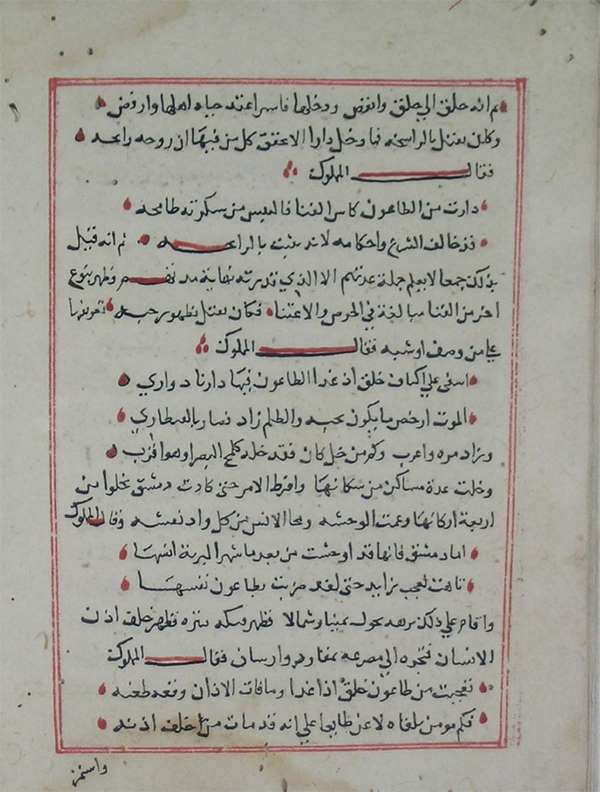 ثم انه حلق الي حلق وانغض ودخلها فاسرا عند حياه اهلها وارفض
وكان يقتل بالرايحة فما دخل دارا الا تحقق كل من فيها ان روحه رايحه
فقال المملوك
دارت من الطاعون كاس الفنا فالنفس من سكرته طافحه
قد خالف الشرع واحكامه لانه يثبت بالرايحه ثم انه قتل
بذلك جمعا لا يعلم جملة عدتهم الا الذي قدرته نهاية مدتهم وظهر بنوع
اخر من الفنا مبالغة في الحرص والاعتنا فكان يقتل بظهور حبه تعريفها
علي من وصف او شبه فقال المملوك
اسفي علي اكناف جلق اذ غدا الطاعون فيها ذا زناد واري
الموت ارخص ما يكون بحبه والظلم زاد فصار بالقنطاري
وزاد مره واعرب وكم من خل كان فقد خله كلمح البصر او هو اقرب
وخلت عدة مساكن من سكانها وافرط الامر حتي كادت دمشق تخلوا من
اربعة اركانها وعمت الوحشه ومحا الانس من كل واد نعشه وقال المملوك
اما دمشق فانها قد اوحشت من بعد ما شهد البرية انسها
تاهت بعجب زايد حتي لقد ضربت بطاعون نفسهـا
واقام علي ذلك برهه يجول يمينا وشمالا فظهر خلف اذن
الانسان فتجره الي مصرعه بمقاود وارسان فقال المملوك
تعجبت من طاعون جلق اذ غدا وما فاتت الاذان وقعه طعنه
فكم مومن تلقاه لاعن طايعا علي انه قد مات من خلف اذنه
واستمر